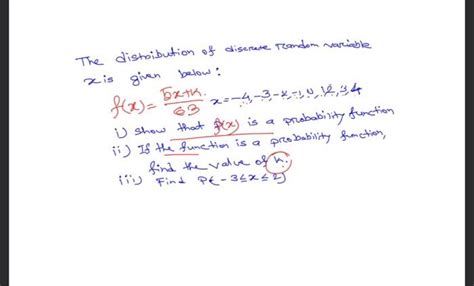 The distribution of discrete random variable
x is given below:
f(x) = 5x+k / 63 x = -4, -3, -2, -1, 0, 1, 2, 3, 4
i) show that f(x) is a probability function
ii) If the function is a probability function,
find the value of k.
iii) Find P(-3≤x≤2)